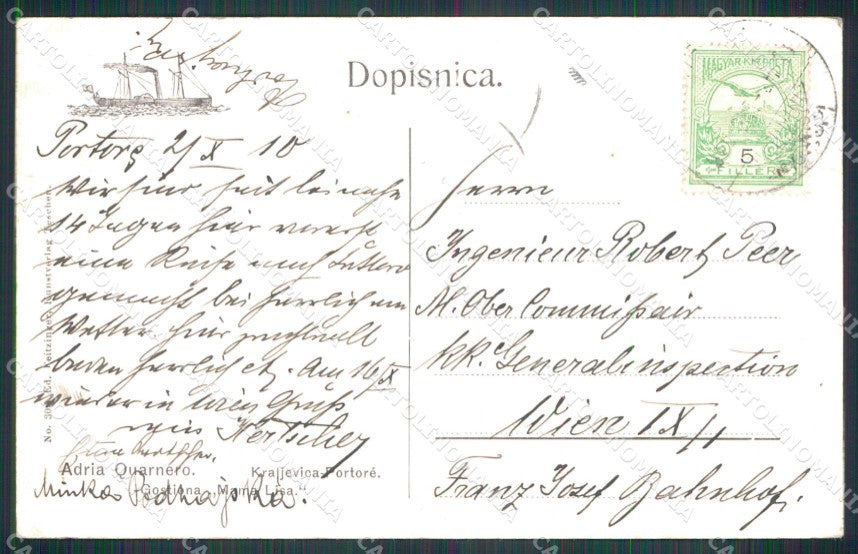 Dopisnica.
MAGYAR KIR. POSTA
5
FILLÉR
Portorè 2/X 10
Wir sind seit beinahe
14 Tagen hier vorerst
eine Reise nach
gemacht bei herrlichem
Wetter hier
baden herrlich etz. Am 16/X
wieder in Wien Gruß
Minka Podhajska.
Herrn
Ingenieur Robert Peer
M. Ober Commissair
KK. Generalinspection
Wien IX/1
Franz Josef Bahnhof.
Adria Quarnero. Kraljevica-Portoré.
Gostiona „Mama Lisa."
Kunstverlag Teschen.
CARTOLINOMANIA